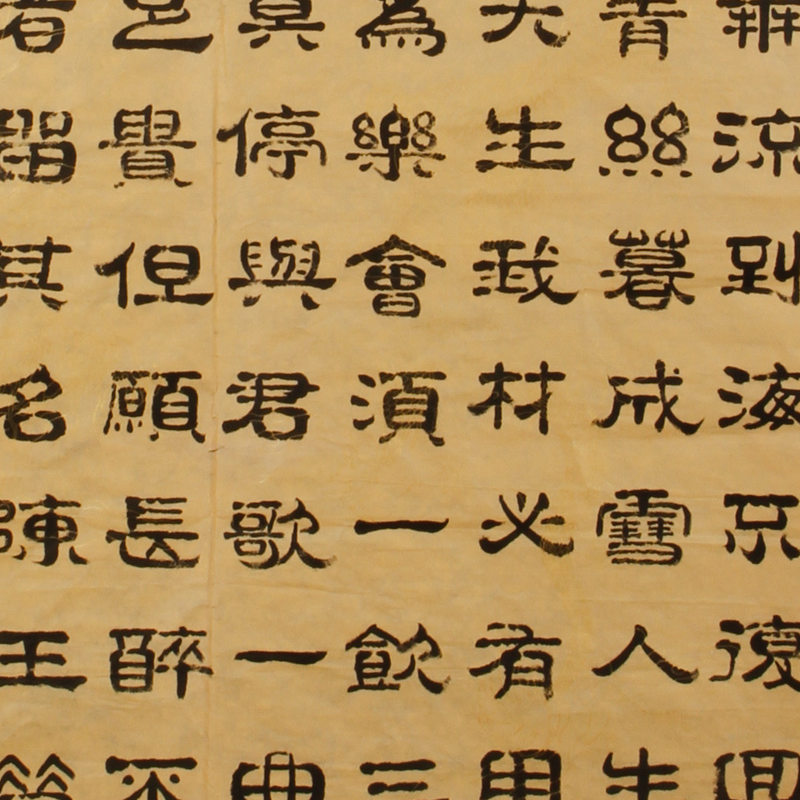 奔流到海不復回
青絲暮成雪人生
天生我材必有用
為樂會須一飲三
莫停與君歌一曲
足貴但願長醉不
者留其名陳王昔